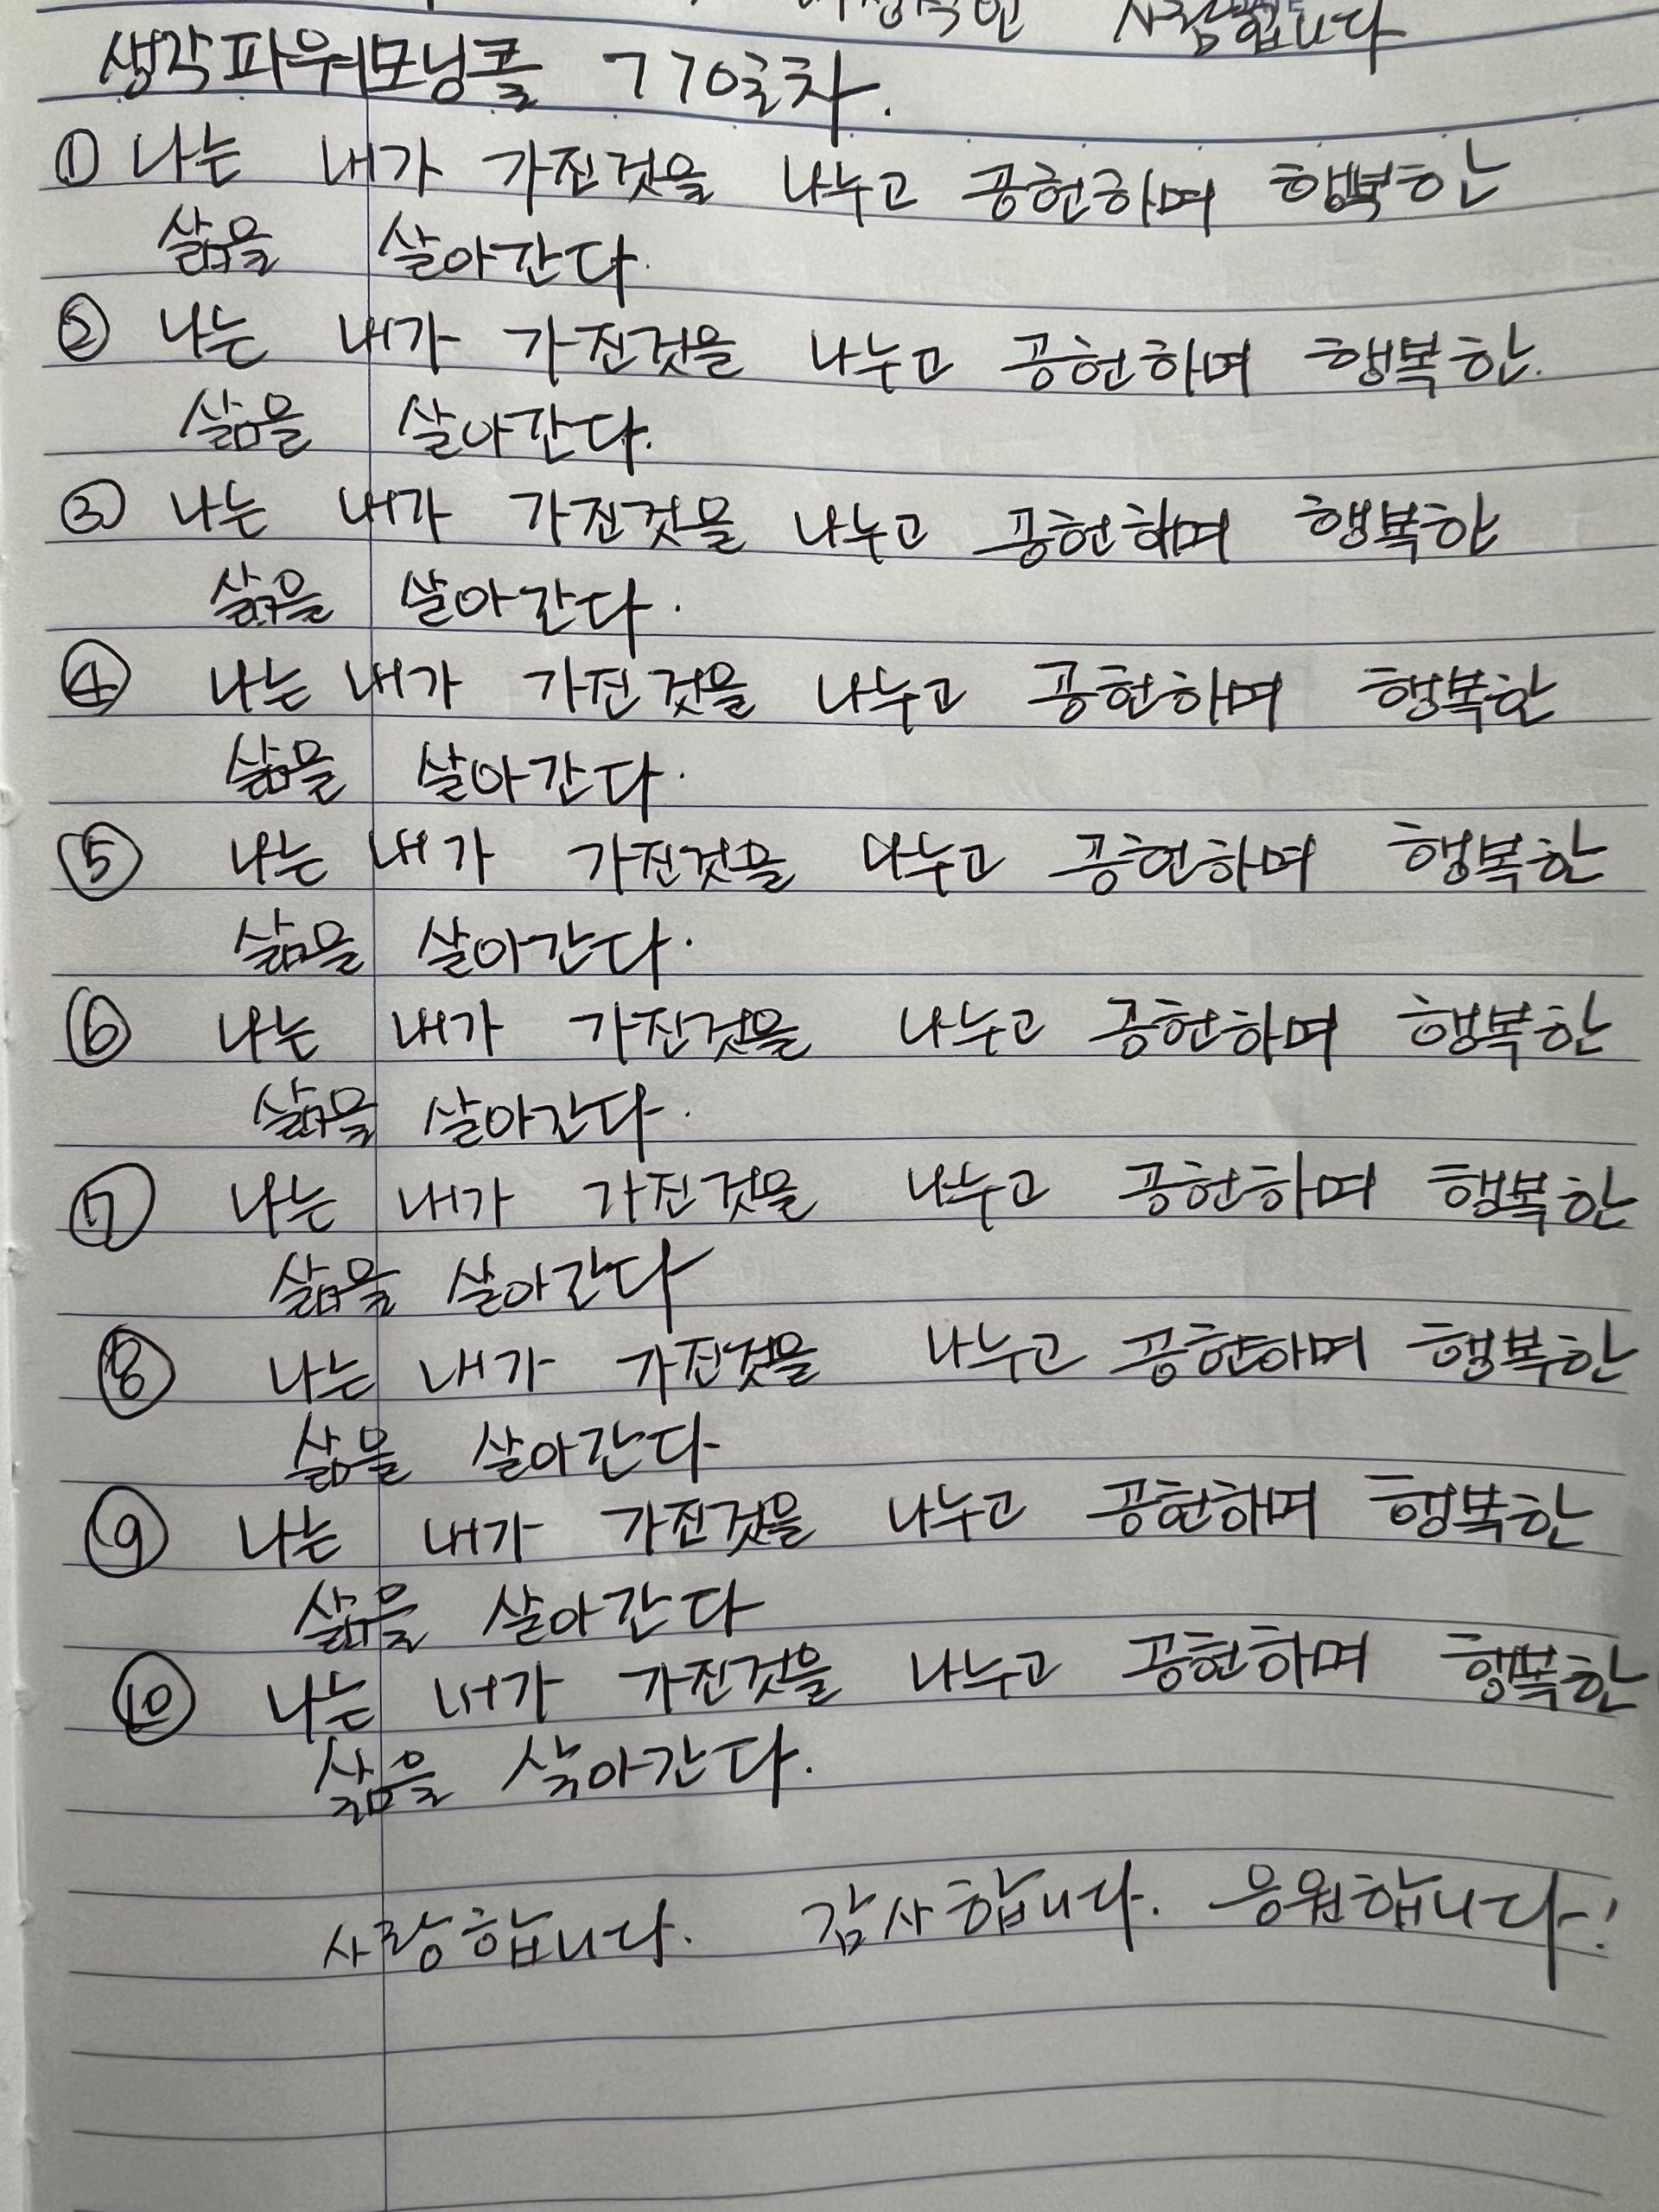 사람입니다
생각파워모닝콜 770일차.
① 나는 내가 가진것을 나누고 공헌하며 행복한
삶을 살아간다.
② 나는 내가 가진것을 나누고 공헌하며 행복한
삶을 살아간다.
③ 나는 내가 가진것을 나누고 공헌하며 행복한
삶을 살아간다.
④ 나는 내가 가진것을 나누고 공헌하며 행복한
삶을 살아간다.
⑤ 나는 내가 가진것을 나누고 공헌하며 행복한
삶을 살아간다.
⑥ 나는 내가 가진것을 나누고 공헌하며 행복한
삶을 살아간다.
⑦ 나는 내가 가진것을 나누고 공헌하며 행복한
삶을 살아간다
⑧ 나는 내가 가진것을 나누고 공헌하며 행복한
삶을 살아간다
⑨ 나는 내가 가진것을 나누고 공헌하며 행복한
삶을 살아간다
⑩ 나는 내가 가진것을 나누고 공헌하며 행복한
삶을 살아간다.
사랑합니다. 감사합니다. 응원합니다!